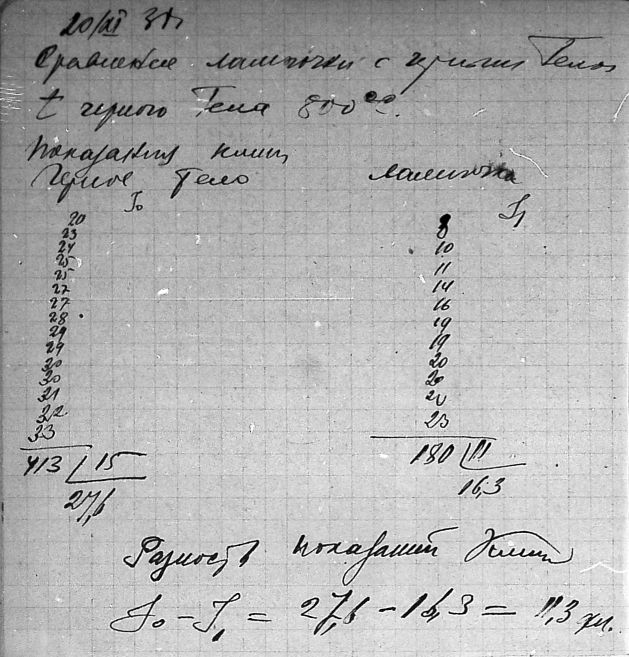 20/XI
Сравнение лампочки с черным Телом
t черного Тела 800°
Показания клин
Черное Тело
J₀
20
23
24
25
25
27
27
28
29
29
30
30
31
32
33
413 | 15
27,6
лампочка
J₁
8
10
11
14
16
19
19
20
20
20
23
180 | 11
16,3
Разность показаний Клин
J₀ – J₁ = 27,6 – 16,3 = 11,3